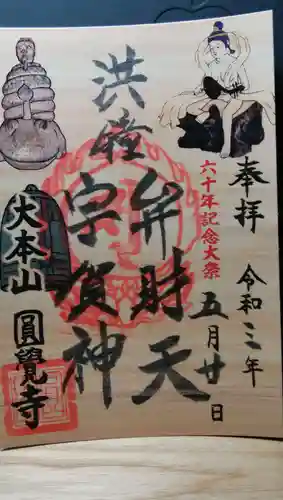 奉拝 令和三年
五月廿日
六十年記念大祭
弁財天
洪鐘
宇賀神
大本山
圓覺寺